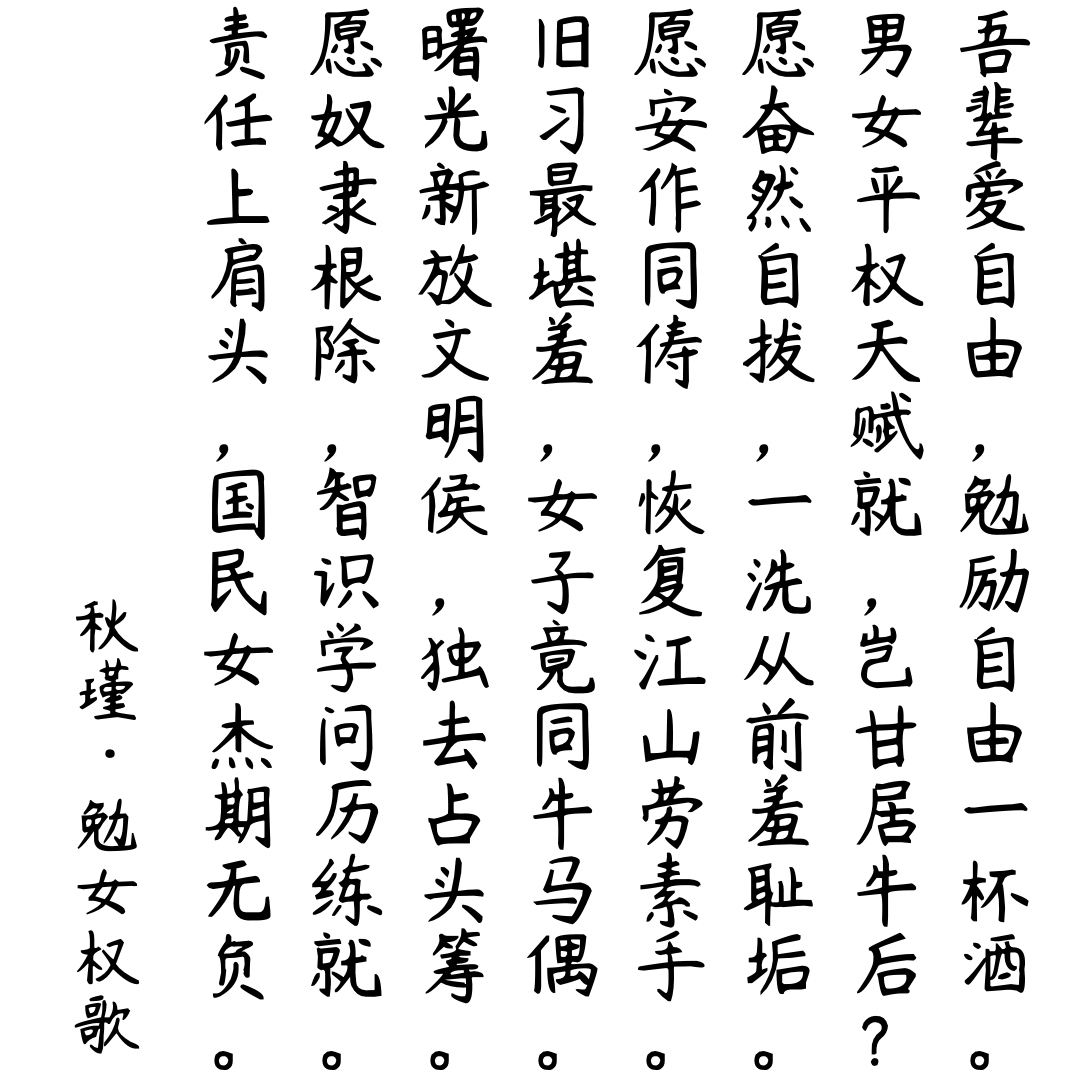 吾辈爱自由,勉励自由一杯酒。
男女平权天赋就,岂甘居牛后?
愿奋然自拔,一洗从前羞耻垢。
愿安作同俦,恢复江山劳素手。
旧习最堪羞,女子竟同牛马偶。
曙光新放文明侯,独去占头筹。
愿奴隶根除,智识学问历练就。
责任上肩头,国民女杰期无负。
秋瑾·勉女权歌